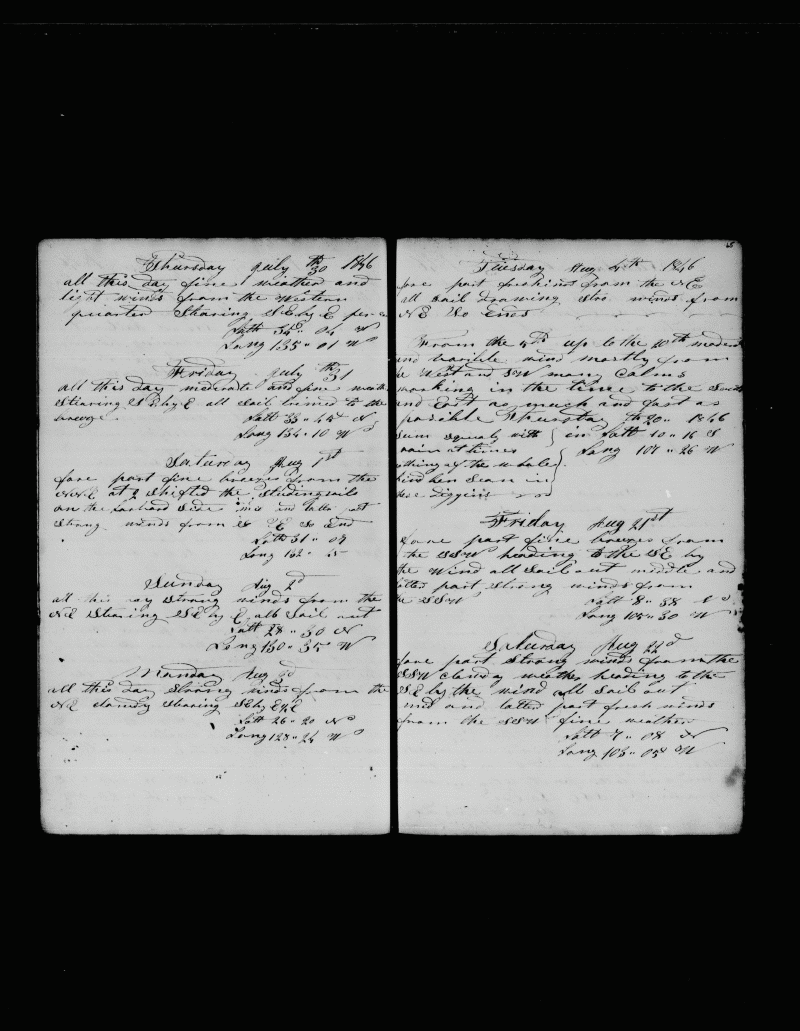 Thursday July 30th 1846
all this day fine weather and
light winds from the Western
quarter Stearing S E by E
Latt 34 " 04 N
Long 135 " 01 W
Friday July 31th
all this day moderate and fine weath
Stearing S E by E all Sail trimed to the
breeze Latt 33 " 45 N
Long 134 " 10 W
Saturday Aug 1st
fore part fine breezes from the
NNE at 2 Shifted the Studingsails
on the Larbard Side mid and latter part
Strong winds from So End
Latt 31 " 04
Long 132 "
Sunday Aug 2d
all this day Strong winds from the
NE Stearing SE by E all Sail out
Latt 28 " 30 N
Long 130 " 35 W
Monday Aug 3d
all this day Strong winds from the
NE cloudy Stearing SE by E
Latt 26 " 20 N
Long 128 " 24 W
65
Tuesday Aug 4th 1846
fore part fresh winds from the NE
all Sail Drawing winds from
NE So Ends
From the 4th up to the 20th moderat
and varible wind mostly from
he West and SW many Calms
working in the time to the South
and East as much and fast as
posible Thursday th20 " 1846
Sum Squals with in Latt 10 " 16 S
rain at times Long 107 " 26 W
othing of the whale
kind ben Sean in
hese Diggins
Friday Aug 21st
fore part fine breezes from
the SSW heading to the SE by
the Wind all Sail out middle and
latter part Strong winds from
he SSW Latt 8 " 38
Long 105 " 30 W
Saturday Aug 22d
fore part Strong winds from the
SSW cloudy weather heading to the
SE by the wind all Sail out
mid and latter part fresh winds
from the SSW fine weather
Latt 7 " 08 N
Long 103 " 05 W